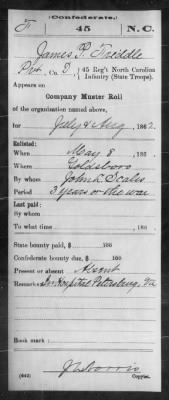 (Confederate.)
T 45 N.C.
James P. Triddle
Pvt, Co. B, 45 Reg't North Carolina
Infantry (State Troops).
Appears on
Company Muster Roll
of the organization named above,
for July & Aug, 1862.
Enlisted:
When May 8, 186 .
Where Goldsboro
By whom John L. Scales
Period 3 years or the war
Last paid:
By whom
To what time , 186 .
State bounty paid, $ 100
Confederate bounty due, $ 100
Present or absent Absent
Remarks: In Hospital Petersburg, Va
Book mark:
(642) Copyist.